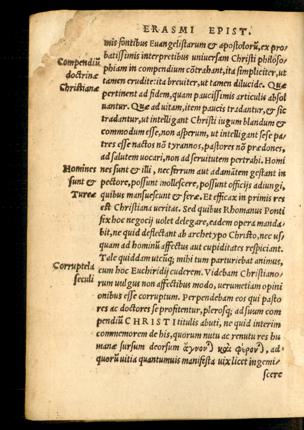 ERASMI EPIST.
mis fontibus Euangelistarum & apostolorũ, ex pro
batissimis interpretibus uniuersam Christi philoso-
phiam in compendium cõtrahant, ita simpliciter, ut
tamen erudite: ita breuiter, ut tamen dilucide. Quæ
pertinent ad fidem, quam paucissimis articulis absol
uantur. Quæ ad uitam, item paucis tradantur, & sic
tradantur, ut intelligant Christi iugum blandum &
commodum esse, non asperum, ut intelligant sese pa-
tres esse nactos nõ tyrannos, pastores nõ prædones,
ad salutem uocari, non ad seruitutem pertrahi. Homi
nes sunt & illi, nec ferrum aut adamãtem gestant in
pectore, possunt mollescere, possunt officijs adiungi,
quibus mansuescunt & feræ. Et efficax in primis res
est Christiana ueritas. Sed quibus Rhomanus Ponti
fix hoc negocij uolet delegare, eadem opera manda-
bit, ne quid deflectant ab archetypo Christo, nec us-
quam ad hominũ affectus aut cupiditates respiciant.
Tale quiddam utcũq; mihi tum parturiebat animus,
cum hoc Enchiridij cuderem. Videbam Christiano-
rum uulgus non affectibus modo, uerumetiam opini
onibus esse corruptum. Perpendebam eos qui pasto
res ac doctores se profitentur, plerosq; ad suum com
pendiũ CHRISTI titulis abuti, ne quid interim
commemorem de his, quorum nutu ac renutu res hu
manæ sursum deorsum
quorũ uitia quantumuis manifesta uix licet ingemi-
scere
Compendiũ
doctrinæ
Christianæ
Homines
sunt &
Turcæ
Corruptela
seculi